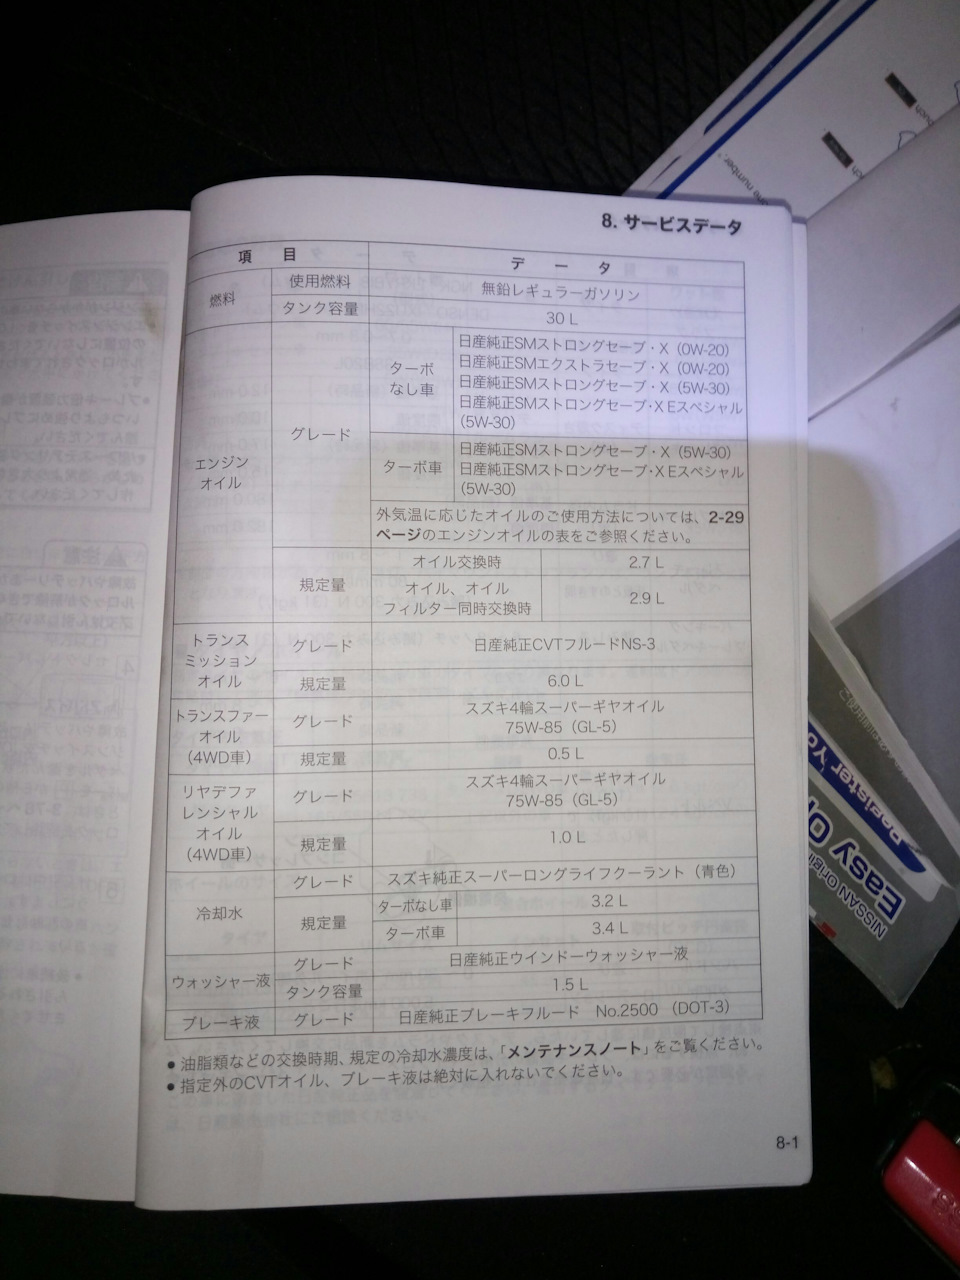 8. サービスデータ
項 目 デ ー タ
燃料 使用燃料 無鉛レギュラーガソリン
タンク容量 30 L
エンジン
オイル
グレード
ターボ
なし車
日産純正SMストロングセーブ・X（0W-20）
日産純正SMエクストラセーブ・X（0W-20）
日産純正SMストロングセーブ・X（5W-30）
日産純正SMストロングセーブ･X Eスペシャル
(5W-30)
ターボ車
日産純正SMストロングセーブ・X（5W-30）
日産純正SMストロングセーブ･X Eスペシャル
(5W-30)
外気温に応じたオイルのご使用方法については、2-29
ページのエンジンオイルの表をご参照ください。
規定量
オイル交換時 2.7 L
オイル、オイル
フィルター同時交換時
2.9 L
トランス
ミッション
オイル
グレード 日産純正CVTフルードNS-3
規定量 6.0 L
トランスファー
オイル
（4WD車）
グレード
スズキ4輪スーパーギヤオイル
75W-85（GL-5）
規定量 0.5 L
リヤデファ
レンシャル
オイル
（4WD車）
グレード
スズキ4輪スーパーギヤオイル
75W-85（GL-5）
規定量 1.0 L
冷却水
グレード スズキ純正スーパーロングライフクーラント（青色）
規定量
ターボなし車 3.2 L
ターボ車 3.4 L
ウォッシャー液
グレード 日産純正ウインドーウォッシャー液
タンク容量 1.5 L
ブレーキ液 グレード 日産純正ブレーキフルード No.2500（DOT-3）
● 油脂類などの交換時期、規定の冷却水濃度は、「メンテナンスノート」をご覧ください。
● 指定外のCVTオイル、ブレーキ液は絶対に入れないでください。
8-1
one number.
Register Yo
Easy Op
NISSAN Origin